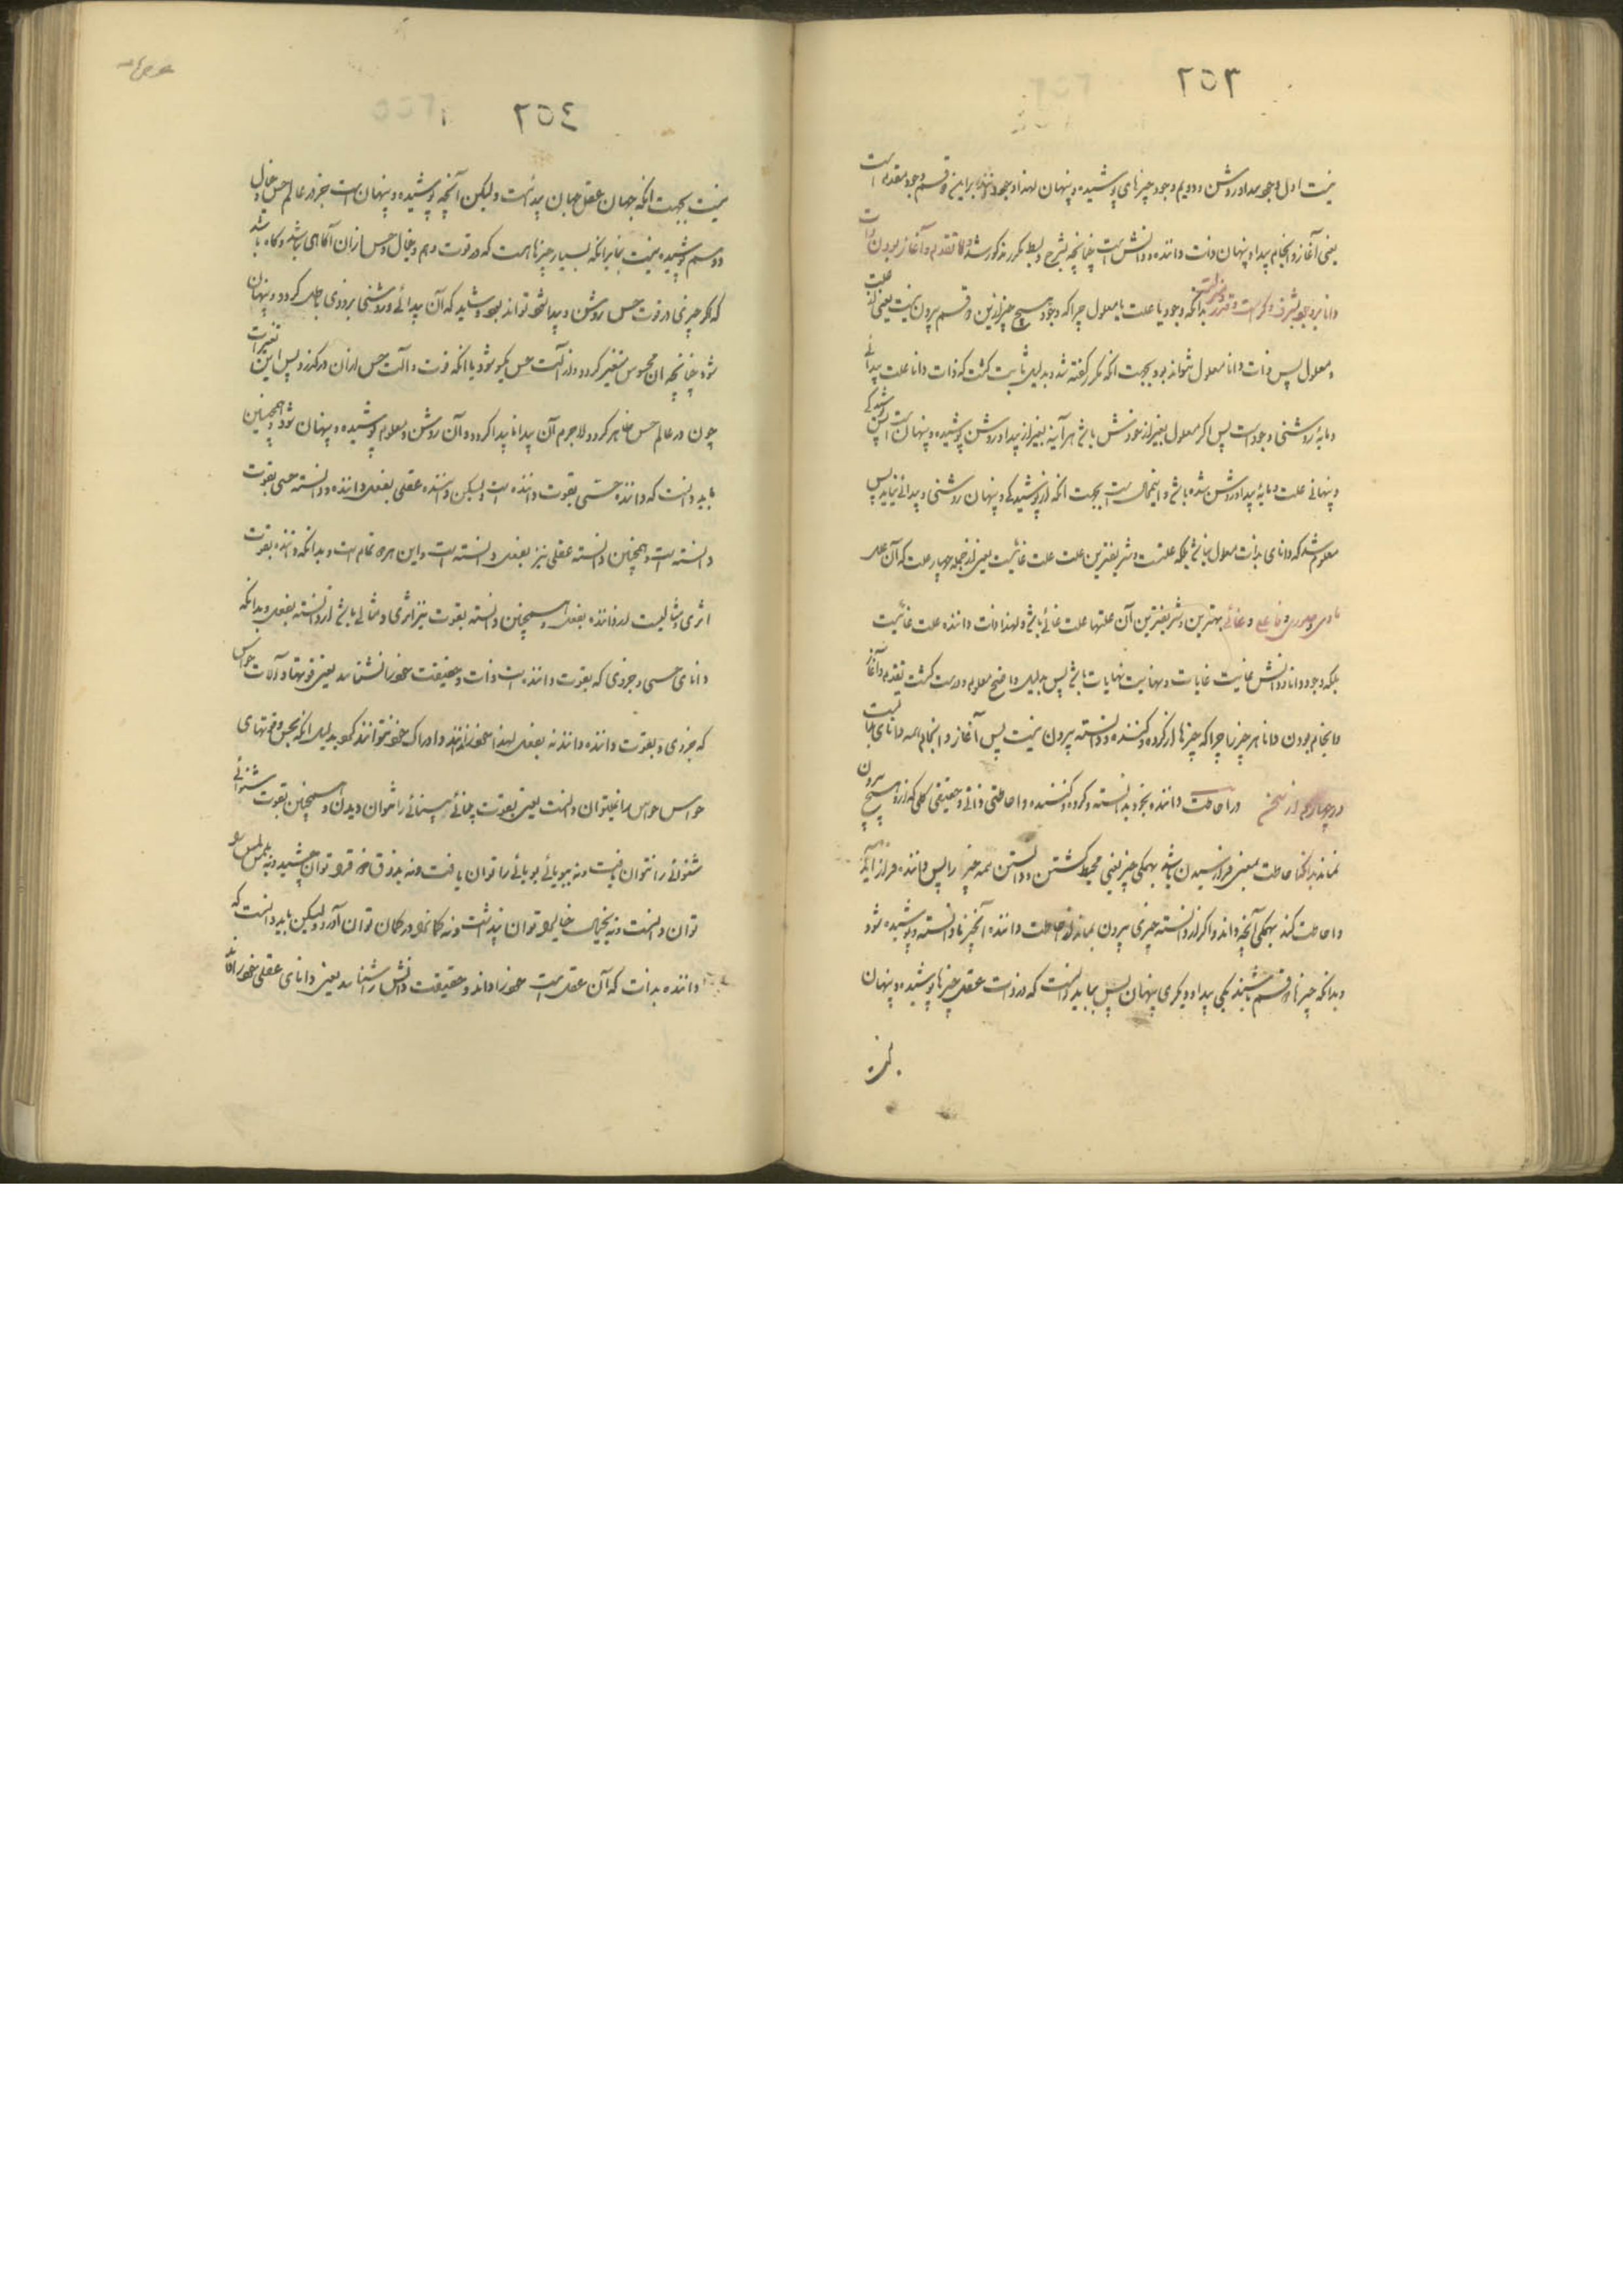 ۲۵۳
نیست اول وجود پیدا و روشن و دویم وجود چیزهای پوشیده و پنهان لهذا وجود داننده برین دو قسم وجود مقدم است
یعنی آغاز و انجام پیدا و پنهان ذات داننده و دانش است چنانچه بشرح و بسط مکرر مذکور شد و اما تقدم و آغاز بودن ذات
دانا بر وجود بشرف و کرامت و قدر و منزلت بدانکه وجود یا علت یا معلول چرا که وجود هیچ چیز ازین دو قسم بیرون نیست یعنی علت
و معلول پس ذات دانا معلول نتواند بود بجهت آنکه مکرر گفته شد و بدلیل ثابت گشت که ذات دانا علت پیدائی
و مایهٔ روشنی وجود است پس اگر معلول بغیر از خودش باشد هرآینه بغیر از پیدا و روشن پوشیده و پنهان است پس پوشیدگی
و پنهانی علت و مایهٔ پیدا و روشن شده باشد و این محال است بجهت آنکه از پوشیدگی و پنهان روشنی و پیدائی نیاید پس
معلوم شد که دانای بذات معلول نباشد بلکه علتست و شریفترین علت علت غائیست یعنی از جمله چهار علت که آن علت
مادی و صوری و فاعلی و غائی بهترین و شریفترین آن علتها علت غائی باشد و لهذا ذات داننده علت غائیست
بلکه وجود دانا و دانش غایت غایات و نهایت نهایات باشد پس بدلیل واضح معلوم و درست گشت تقدم و آغاز
و انجام بودن دانا هر چیز را چرا که چیزها از کرده و کننده و دانسته بیرون نیست پس آغاز و انجام همه دانای است
در چهارم از سخن در احاطت داننده بخود بدانسته و کرده و کننده و احاطتی ذاتی و حقیقی کلی که از و هیچ بیرون
نماند بدانکه احاطت بمعنی فرا رسیدن باشد بهمگی چیز یعنی محیط گشتن و دانستن همه چیز را پس داننده فراز آید
و احاطت کند بهمگی آنچه داند و اگر از دانسته چیزی بیرون بماند از احاطت داننده آنچیز نادانسته و پوشیده شود
و بدانکه چیزها دو قسم باشند یکی پیدا و دیگری پنهان پس بباید دانست که در ذات عقل چیزها پوشیده و پنهان
۲۵٤
نیست بجهت آنکه جهان عقل جهان پیدائست ولیکن آنچه پوشیده و پنهان است جز در عالم حس و خیال
و وهم پوشیده نیست بنابرآنکه بسیار چیزها هست که در قوت وهم و خیال و حس ازان آگاهی نباشد و گاه باشد
که اگر چیزی در قوت حس روشن و پیدا شود تواند بود و شاید که آن پیدائی و روشنی بزودی باطل گردد و پنهان
شود چنانچه آن محسوس متغیر گردد و از آلت حس یکسو شود یا آنکه قوت و آلت حس ازان درگذرد پس این تغیرات
چون در عالم حس ظاهر گردد لاجرم آن پیدا ناپیدا گردد و آن روشن و معلوم پوشیده و پنهان شود و همچنین
باید دانست که داننده حسی بقوت داننده است ولیکن داننده عقلی بفعل داننده و دانسته حسی بقوت
دانسته است و همچنین دانسته عقلی نیز بفعل دانسته است و این هر دو تمام است و بدانکه داننده بقوت
اثری و مثالیست از داننده بفعل و همچنین دانسته بقوت نیز اثری و مثالی باشد از دانسته بفعل و بدانکه
دانای حسی و جزوی که بقوت داننده است ذات و حقیقت خود را نشناسد یعنی قوتها و آلات حواس
که جزوی و بقوت داننده دانند نه بفعل لهذا خود را ندانند و ادراک خود نتوانند کرد بدلیل آنکه بحس و قوتهای
حواس حواس را نتوان دانست یعنی بقوت بینائی بینائی را نتوان دیدن و همچنین بقوت شنوائی
شنوائی را نتوان یافت و نه ببویائی بویائی را توان یافت و نه بذوق خود ذوق توان چشید و نه بلمس لمس
توان دانست و نه بخیال خیال را توان پنداشت و نه گمان را در گمان توان آورد ولیکن باید دانست که
داننده بذات که آن عقل است خود را داند و حقیقت دانش را شناسد یعنی دانای عقلی خود را